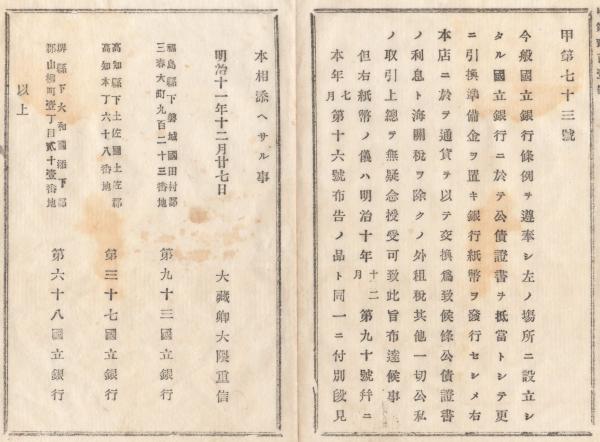 甲第七十三號
今般國立銀行條例ヲ遵奉シ左ノ場所ニ設立シ
タル國立銀行ニ於テ公債證書ヲ抵當トシテ更
ニ引換準備金ヲ置キ銀行紙幣ヲ發行セシメ右
本店ニ於テ通貨ヲ以テ交換爲致候條公債證書
ノ利息ト海關稅ヲ除クノ外租稅其他一切公私
ノ取引上總テ無疑念授受可致此旨布達候事
但右紙幣ノ儀ハ明治十年十二月第九十號幷ニ
本年七月第十六號布告ノ品ト同一ニ付別段見
本相添ヘサル事
明治十一年十二月廿七日
大藏卿大隈重信
福島縣下磐城國田村郡
三春大町九百二十三番地
第九十三國立銀行
高知縣下土佐國土佐郡
高知本丁六十八番地
第三十七國立銀行
堺縣下大和國添下郡
郡山柳町壹丁目貳十壹番地
第六十八國立銀行
以上